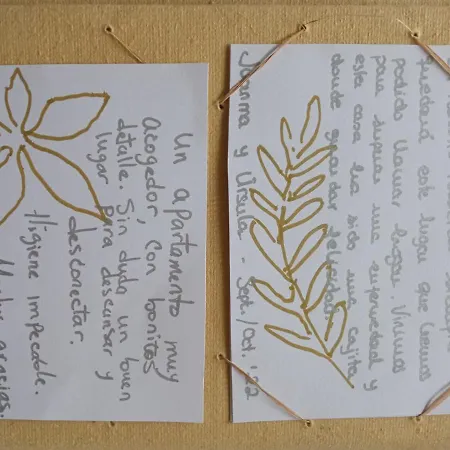 Un apartamento muy
acogedor, con bonitos
detalle. Sin duda un buen
lugar para descansar y
desconectar.
Higiene impecable.
Muchas gracias.
siempre
quedará este lugar que hemos
podido llamar hogar. Vinimos
para superar una enfermedad y
esta casa ha sido una cajita
donde guardar felicidad.
Joanma y Úrsula - Sept./Oct. '22